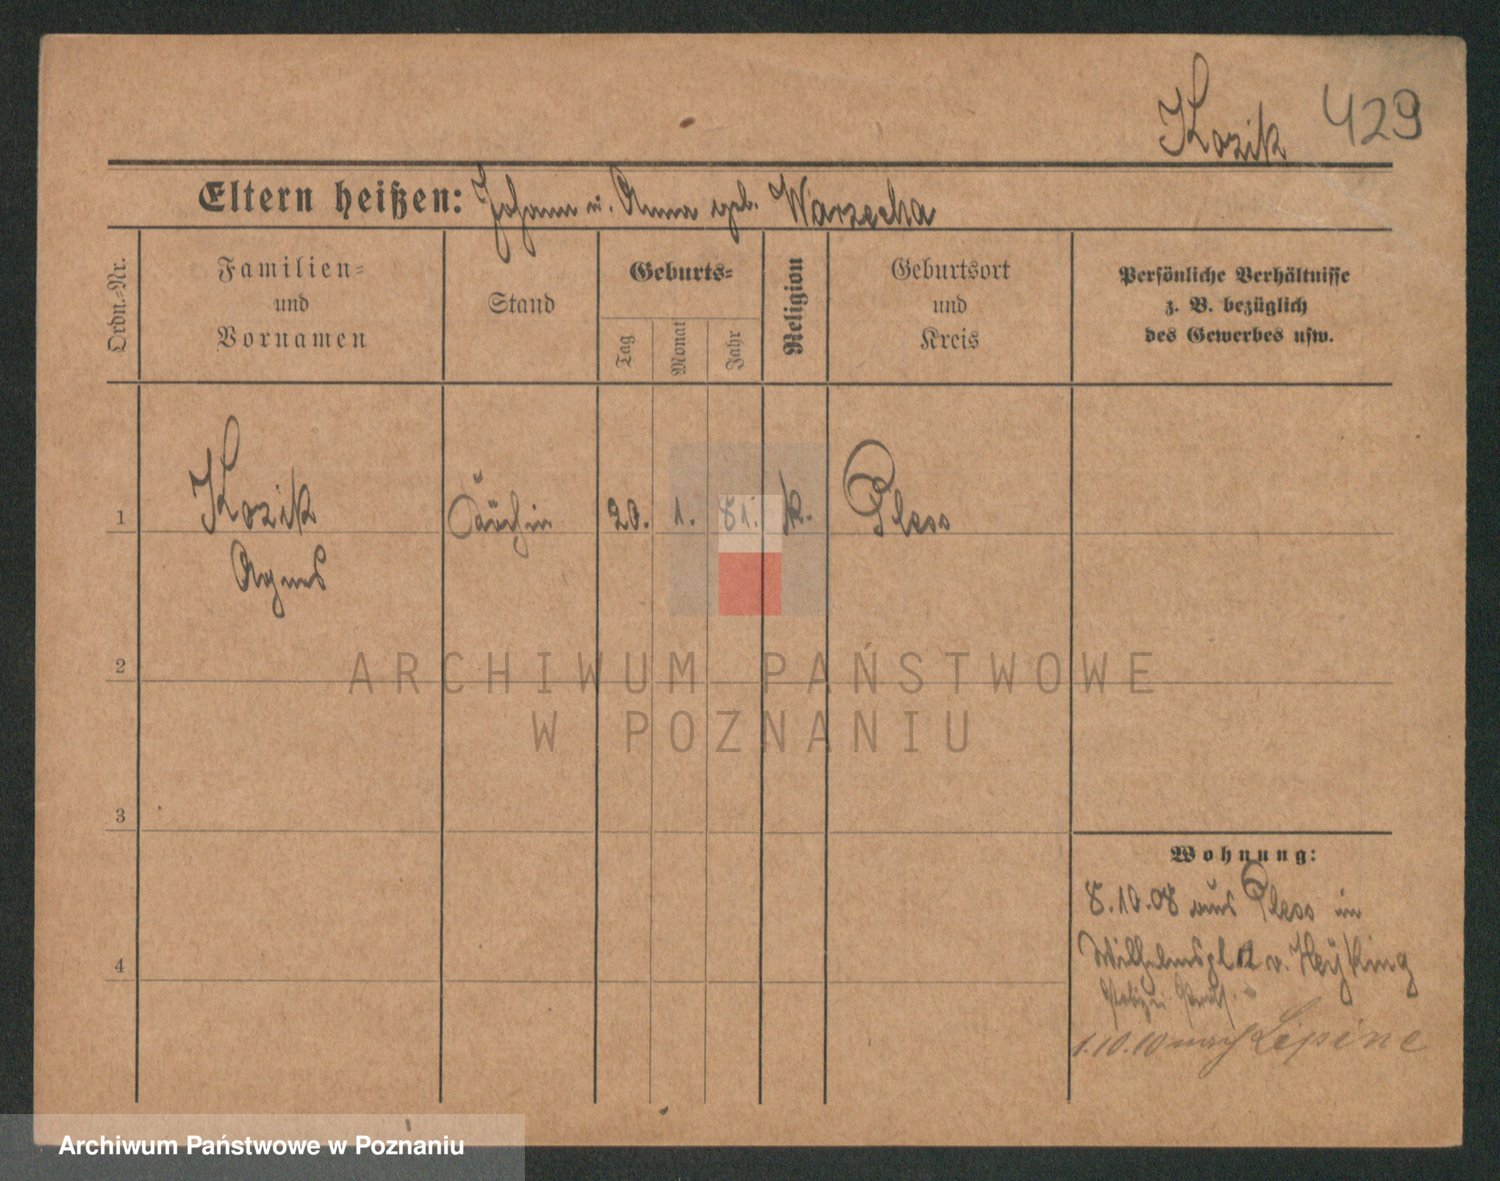 Kozik 429
Eltern heißen: Johann u. Anna geb. Warzecha
Ordn.=Nr.
Familien=
und
Vornamen
Stand
Geburts=
Tag
Monat
Jahr
Religion
Geburtsort
und
Kreis
Persönliche Verhältnisse
z. B. bezüglich
des Gewerbes usw.
1 Kozik Köchin 20. 1. 81. k. Pless
Agnes
2
3
4
Wohnung:
8.10.08 aus Pless in
v. Heyking
1.10.10 nach Lipine
ARCHIWUM PAŃSTWOWE
W POZNANIU
Archiwum Państwowe w Poznaniu